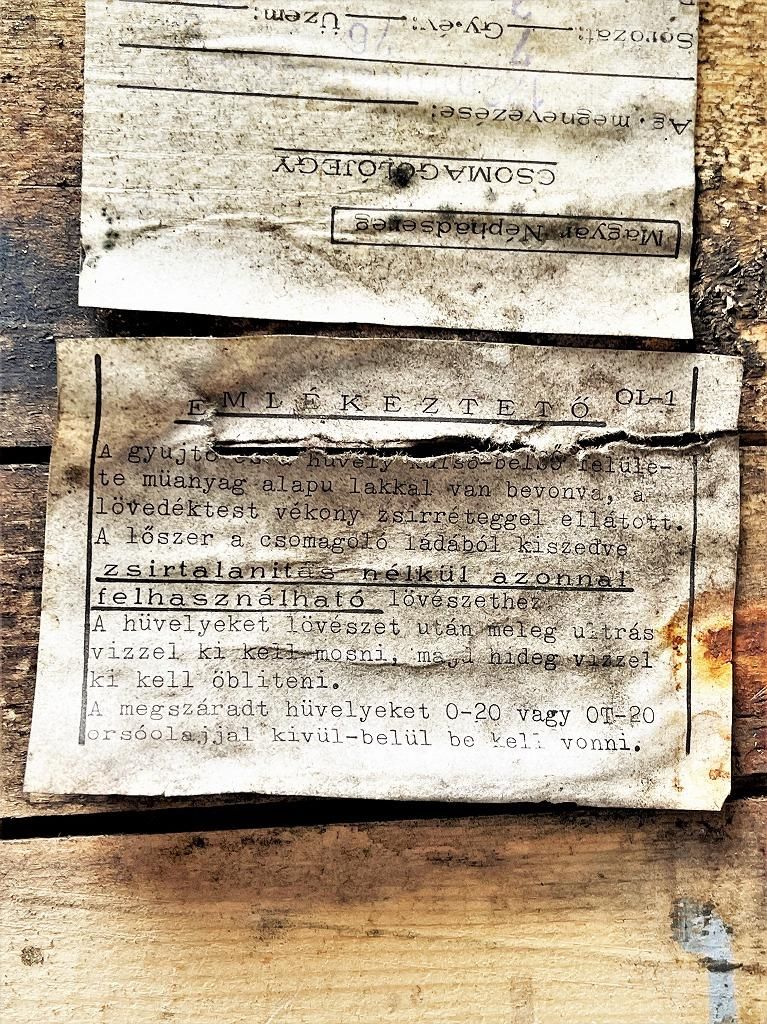 Magyar Néphadsereg
CSOMAGOLÓJEGY
Ág. megnevezése:
Sorozat: 7 Gy.év: 76 Üzem:
EMLÉKEZTETŐ OL-1
A gyujtó és a hüvely külső-belső felüle-
te müanyag alapu lakkal van bevonva, a
lövedéktest vékony zsirréteggel ellátott.
A lőszer a csomagoló ládából kiszedve
zsirtalanitás nélkül azonnal
felhasználható lövészethez
A hüvelyeket lövészet után meleg ultrás
vizzel ki kell mosni, majd hideg vizzel
ki kell öbliteni.
A megszáradt hüvelyeket O-20 vagy OT-20
orsóolajjal kivül-belül be kell vonni.